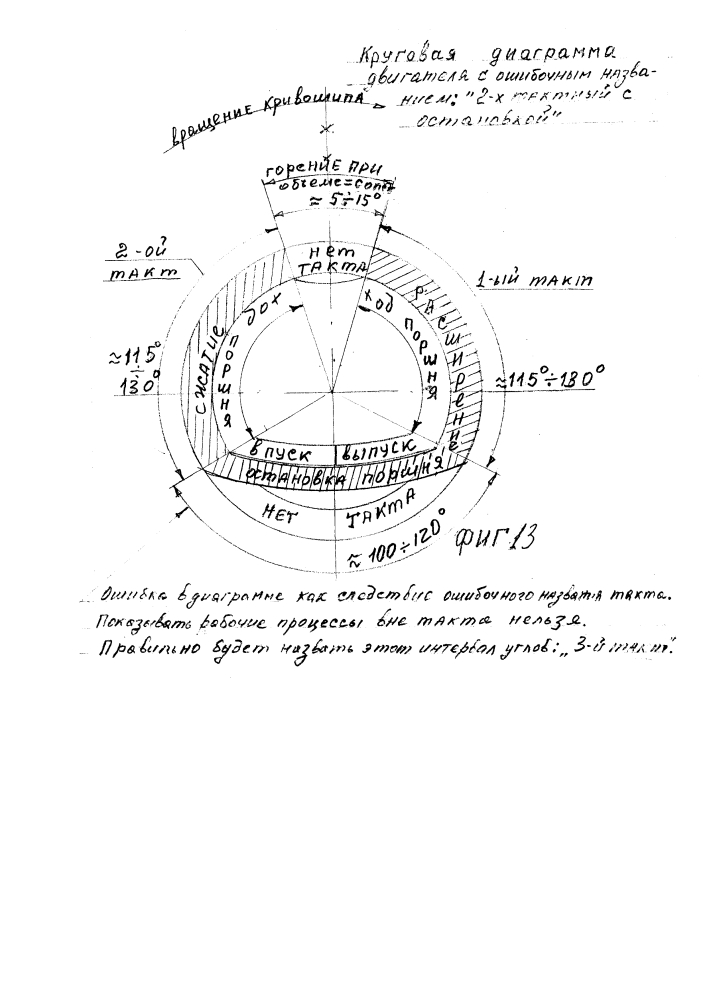 Круговая диаграмма
двигателя с ошибочным назва-
нием: "2-х тактный с
остановкой"
вращение кривошипа
горение при
объеме=const
≈ 5÷15°
2-ой
такт
нет
такта
1-ый такт
сжатие
ход поршня
ход поршня
расширение
≈115°
÷
130°
≈115°÷130°
впуск
выпуск
остановка поршня
нет такта
≈100÷120°
Фиг 13
Ошибка в диаграмме как следствие ошибочного названия такта.
Показывать рабочие процессы вне такта нельзя.
Правильно будет назвать этот интервал углов: „3-й такт".